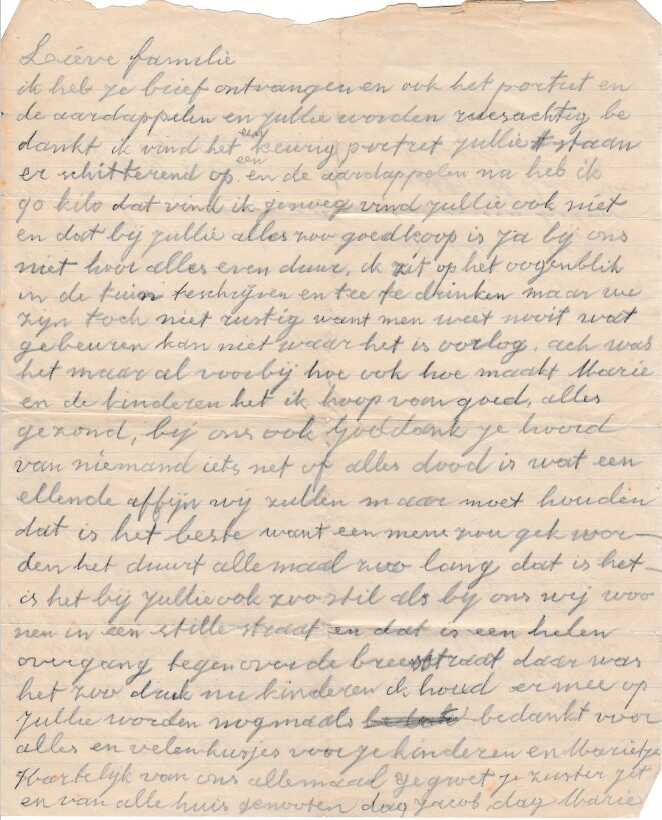 Liéve familie
ik heb je brief ontvangen en ook het portret en
de aardappelen en jullie worden reusachtig be
dankt ik vind het een keurig portret jullie staan
er schitterend op een en de aardappelen na heb ik
90 kilo dat vind ik genoeg vind jullie ook niet
en dat bij jullie alles zoo goedkoop is ja bij ons
niet hoor alles even duur, ik zit op het oogenblik
in de tuin teschrijven en tee te drinken maar we
zijn toch niet rustig want men weet nooit wat
gebeuren kan niet waar het is oorlog. ach was
het maar al voorbij hoe ook hoe maakt Marie
en de kinderen het ik hoop van goed, alles
gezond, bij ons ook Goddank je hoord
van niemand iets net of alles dood is wat een
ellende affijn wij zullen maar moet houden
dat is het beste want een mens zou gek wor—
den het duurt allemaal zoo lang dat is het—
is het bij jullie ook zoo stil als bij ons wij woo
nen in een stille straat en dat is een helen
overgang tegenover de breestraat daar was
het zoo druk nu kinderen ik houd er mee op
jullie worden nogmaals bedankt voor
alles en velen kusjes voor je kinderen en Marietje
Hartelijk van ons allemaal gegroet je zuster Jet
en van alle huis genooten dag Jacob dag Marie